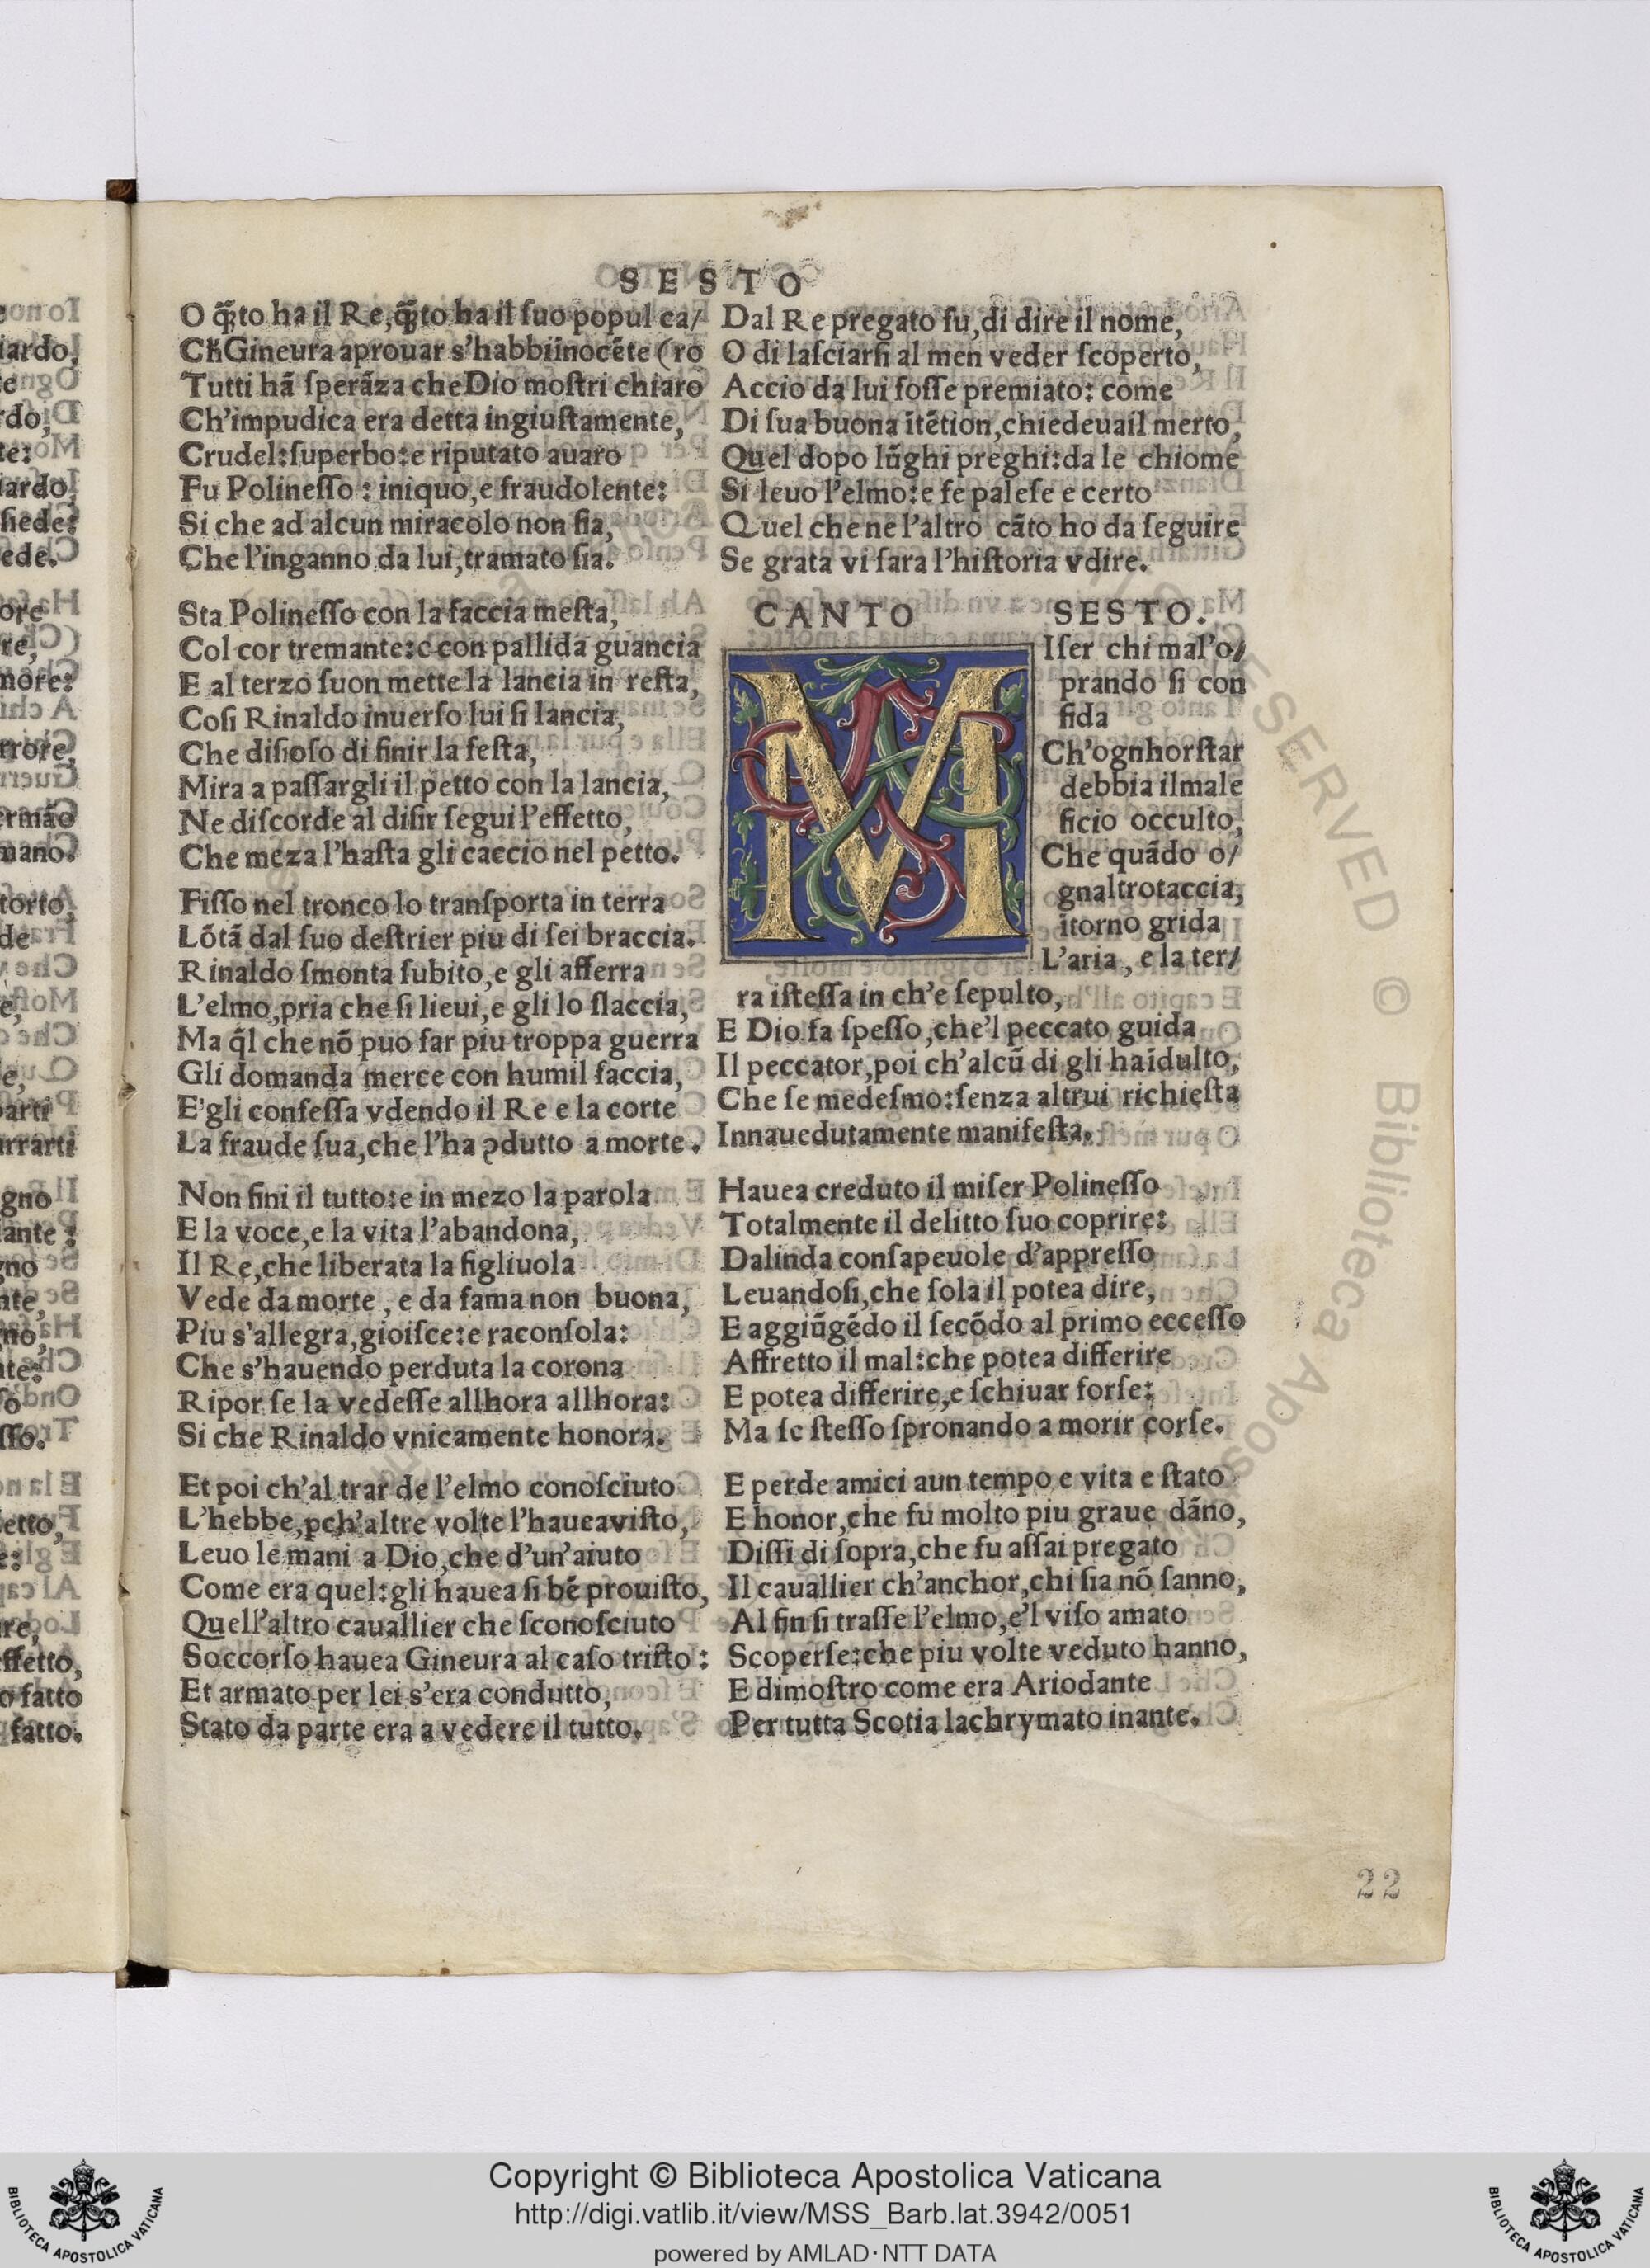 SESTO
O q̄to ha il Re, q̄to ha il ſuo popul ca/
Ch̄ Gineura aprouar s'habbi īnocēte (ro
Tutti hā ſperāza che Dio moſtri chiaro
Ch'impudica era detta ingiuſtamente,
Crudel: ſuperbo: e riputato auaro
Fu Polineſſo: iniquo, e fraudolente:
Si che ad alcun miracolo non fia,
Che l'inganno da lui, tramato ſia.
Sta Polineſſo con la faccia meſta,
Col cor tremante: c con pallida guancia
E al terzo ſuon mette la lancia in reſta,
Coſi Rinaldo inuerſo lui ſi lancia,
Che diſioſo di finir la feſta,
Mira a paſſargli il petto con la lancia,
Ne diſcorde al diſir ſegui l'effetto,
Che meza l'haſta gli caccio nel petto.
Fiſſo nel tronco lo tranſporta in terra
Lōtā dal ſuo deſtrier piu di ſei braccia.
Rinaldo ſmonta ſubito, e gli afferra
L'elmo, pria che ſi lieui, e gli lo ſlaccia,
Ma q̄l che nō puo far piu troppa guerra
Gli domanda merce con humil faccia,
E'gli confeſſa vdendo il Re e la corte
La fraude ſua, che l'ha ꝯdutto a morte.
Non fini il tutto: e in mezo la parola
E la voce, e la vita l'abandona,
Il Re, che liberata la figliuola
Vede da morte, e da fama non buona,
Piu s'allegra, gioiſce: e raconſola:
Che s'hauendo perduta la corona
Ripor ſe la vedeſſe allhora allhora:
Si che Rinaldo vnicamente honora.
Et poi ch'al trar de l'elmo conoſciuto
L'hebbe, ꝑch'altre volte l'haueaviſto,
Leuo le mani a Dio, che d'un'aiuto
Come era quel: gli hauea ſi bē prouiſto,
Quell'altro cauallier che ſconoſciuto
Soccorſo hauea Gineura al caſo triſto:
Et armato per lei s'era condutto,
Stato da parte era a vedere il tutto.
Dal Re pregato fu, di dire il nome,
O di laſciarſi al men veder ſcoperto,
Accio da lui foſſe premiato: come
Di ſua buona ītētion, chiedeuail merto,
Quel dopo lūghi preghi: da le chiome
Si leuo l'elmo: e fe paleſe e certo
Quel che ne l'altro cāto ho da ſeguire
Se grata vi ſara l'hiſtoria vdire.
CANTO SESTO.
M Iſer chi mal'o/
prando ſi con
fida
Ch'ognhorſtar
debbia ilmale
ficio occulto,
Che quādo o/
gnaltrotaccia,
ītorno grida
L'aria, e la ter/
ra iſteſſa in ch'e ſepulto,
E Dio fa ſpeſſo, che'l peccato guida
Il peccator, poi ch'alcū di gli haīdulto,
Che ſe medeſmo: ſenza altrui richieſta
Innauedutamente manifeſta.
Hauea creduto il miſer Polineſſo
Totalmente il delitto ſuo coprire:
Dalinda conſapeuole d'appreſſo
Leuandoſi, che ſola il potea dire,
E aggiūgēdo il ſecōdo al primo ecceſſo
Affretto il mal: che potea differire
E potea differire, e ſchiuar forſe:
Ma ſc ſteſſo ſpronando a morir corſe.
E perde amici aun tempo e vita e ſtato
E honor, che fu molto piu graue dāno,
Diſſi di ſopra, che fu aſſai pregato
Il cauallier ch'anchor, chi ſia nō ſanno,
Al fin ſi traſſe l'elmo, e'l viſo amato
Scoperſe: che piu volte veduto hanno,
E dimoſtro come era Ariodante
Per tutta Scotia lachrymato inante.
22
Copyright © Biblioteca Apostolica Vaticana
http://digi.vatlib.it/view/MSS_Barb.lat.3942/0051
powered by AMLAD·NTT DATA
BIBLIOTECA APOSTOLICA VATICANA
BIBLIOTECA APOSTOLICA VATICANA